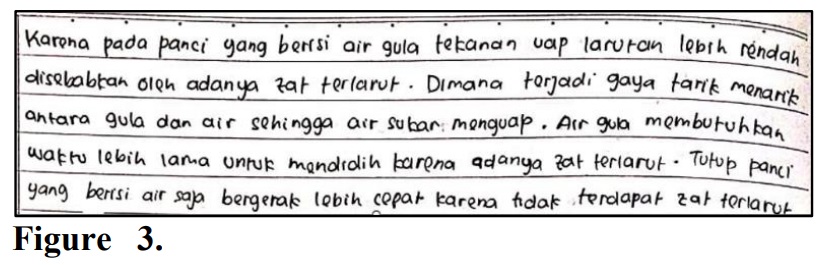 Karena pada panci yang berisi air gula tekanan uap larutan lebih rendah
disebabkan oleh adanya zat terlarut. Dimana terjadi gaya tarik menarik
antara gula dan air sehingga air sukar menguap. Air gula membutuhkan
waktu lebih lama untuk mendidih karena adanya zat terlarut. Tutup panci
yang berisi air saja bergerak lebih cepat karena tidak terdapat zat terlarut
Figure 3.